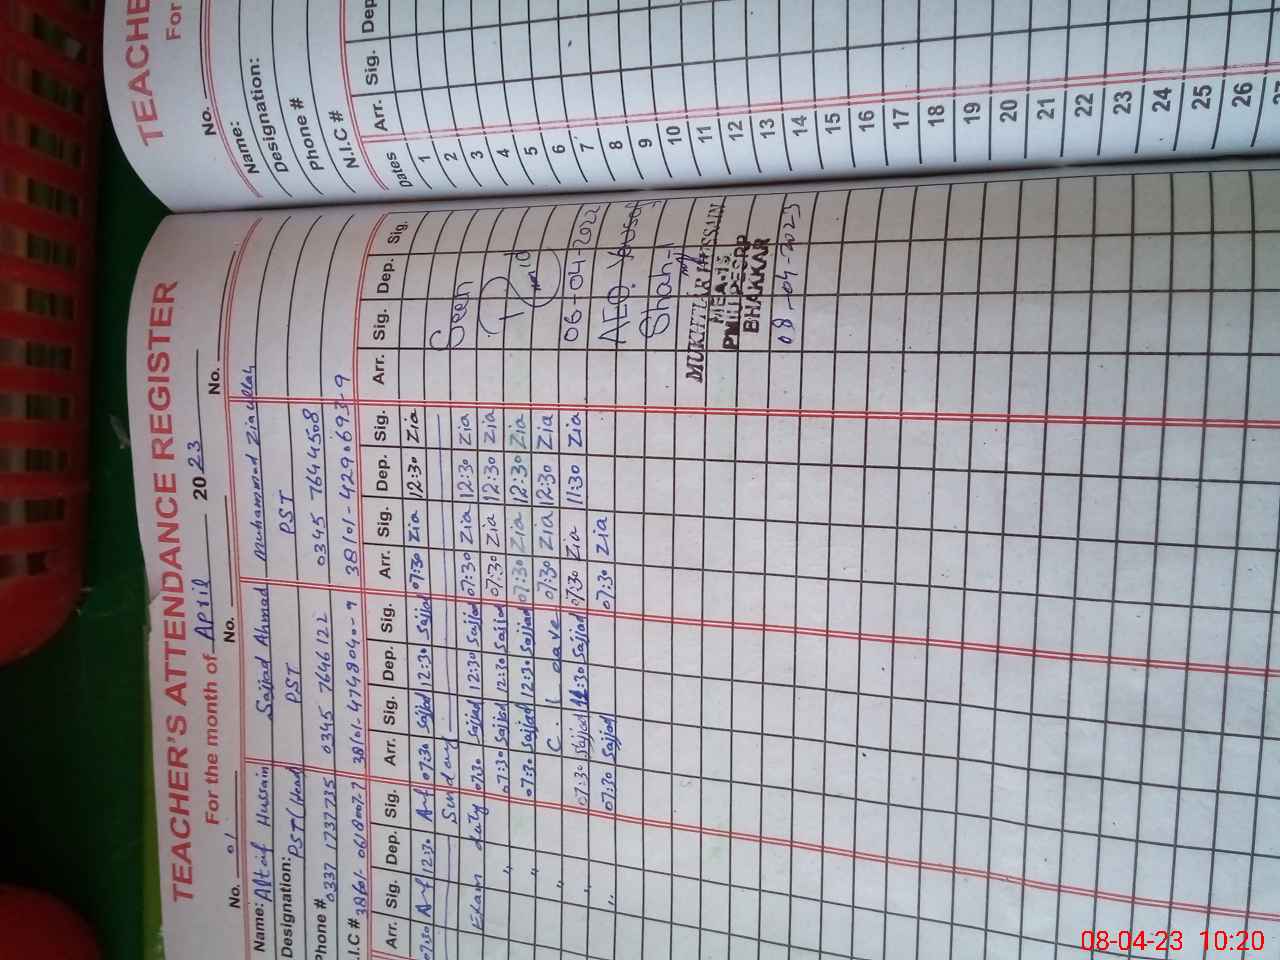 TEACHER'S ATTENDANCE REGISTER
For the month of April 2023
No. 01 No. No.
Name: Altaf Hussain Sajjad Ahmad Muhammad Ziaullah
Designation: PST/Head PST PST
Phone # 0337 1737735 0345 7646122 0345 7644508
N.I.C # 38101-4748040-9 38101-4290693-9
Arr. Sig. Dep. Sig. Arr. Sig. Dep. Sig. Arr. Sig. Dep. Sig. Arr. Sig. Dep. Sig.
07:30 12:30 07:30 Sajjad 12:30 Sajjad 07:30 Zia 12:30 Zia
Sunday
Exam duty 07:30 Sajjad 12:30 Sajjad 07:30 Zia 12:30 Zia
" 07:30 Sajjad 12:30 Sajjad 07:30 Zia 12:30 Zia
" 07:30 Sajjad 12:30 Sajjad 07:30 Zia 12:30 Zia
" C. Leave 07:30 Zia 12:30 Zia
" 07:30 Sajjad 11:30 Sajjad 07:30 Zia 11:30 Zia
" 07:30 Sajjad 07:30 Zia
Seen
06-04-2022
AEO Yousaf
Shah
MUKHTIAR HUSSAIN
MEA-15
BHAKKAR
08-04-2023
TEACHE
For
No.
Name:
Designation:
Phone #
N.I.C #
Dates Arr. Sig. Dep
1
2
3
4
5
6
7
8
9
10
11
12
13
14
15
16
17
18
19
20
21
22
23
24
25
26
27
08-04-23 10:20